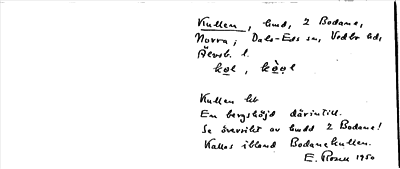 Kullen, hmd, 2 Bodane,
Norra; Dals-Eds sn, Vedbo hd,
Älvsb. l.
kol, kòol
Kullen hb
En bergshöjd därintill.
Se översikt av hmdd 2 Bodane!
Kallas ibland Bodanekullen.
E. Rosell 1950